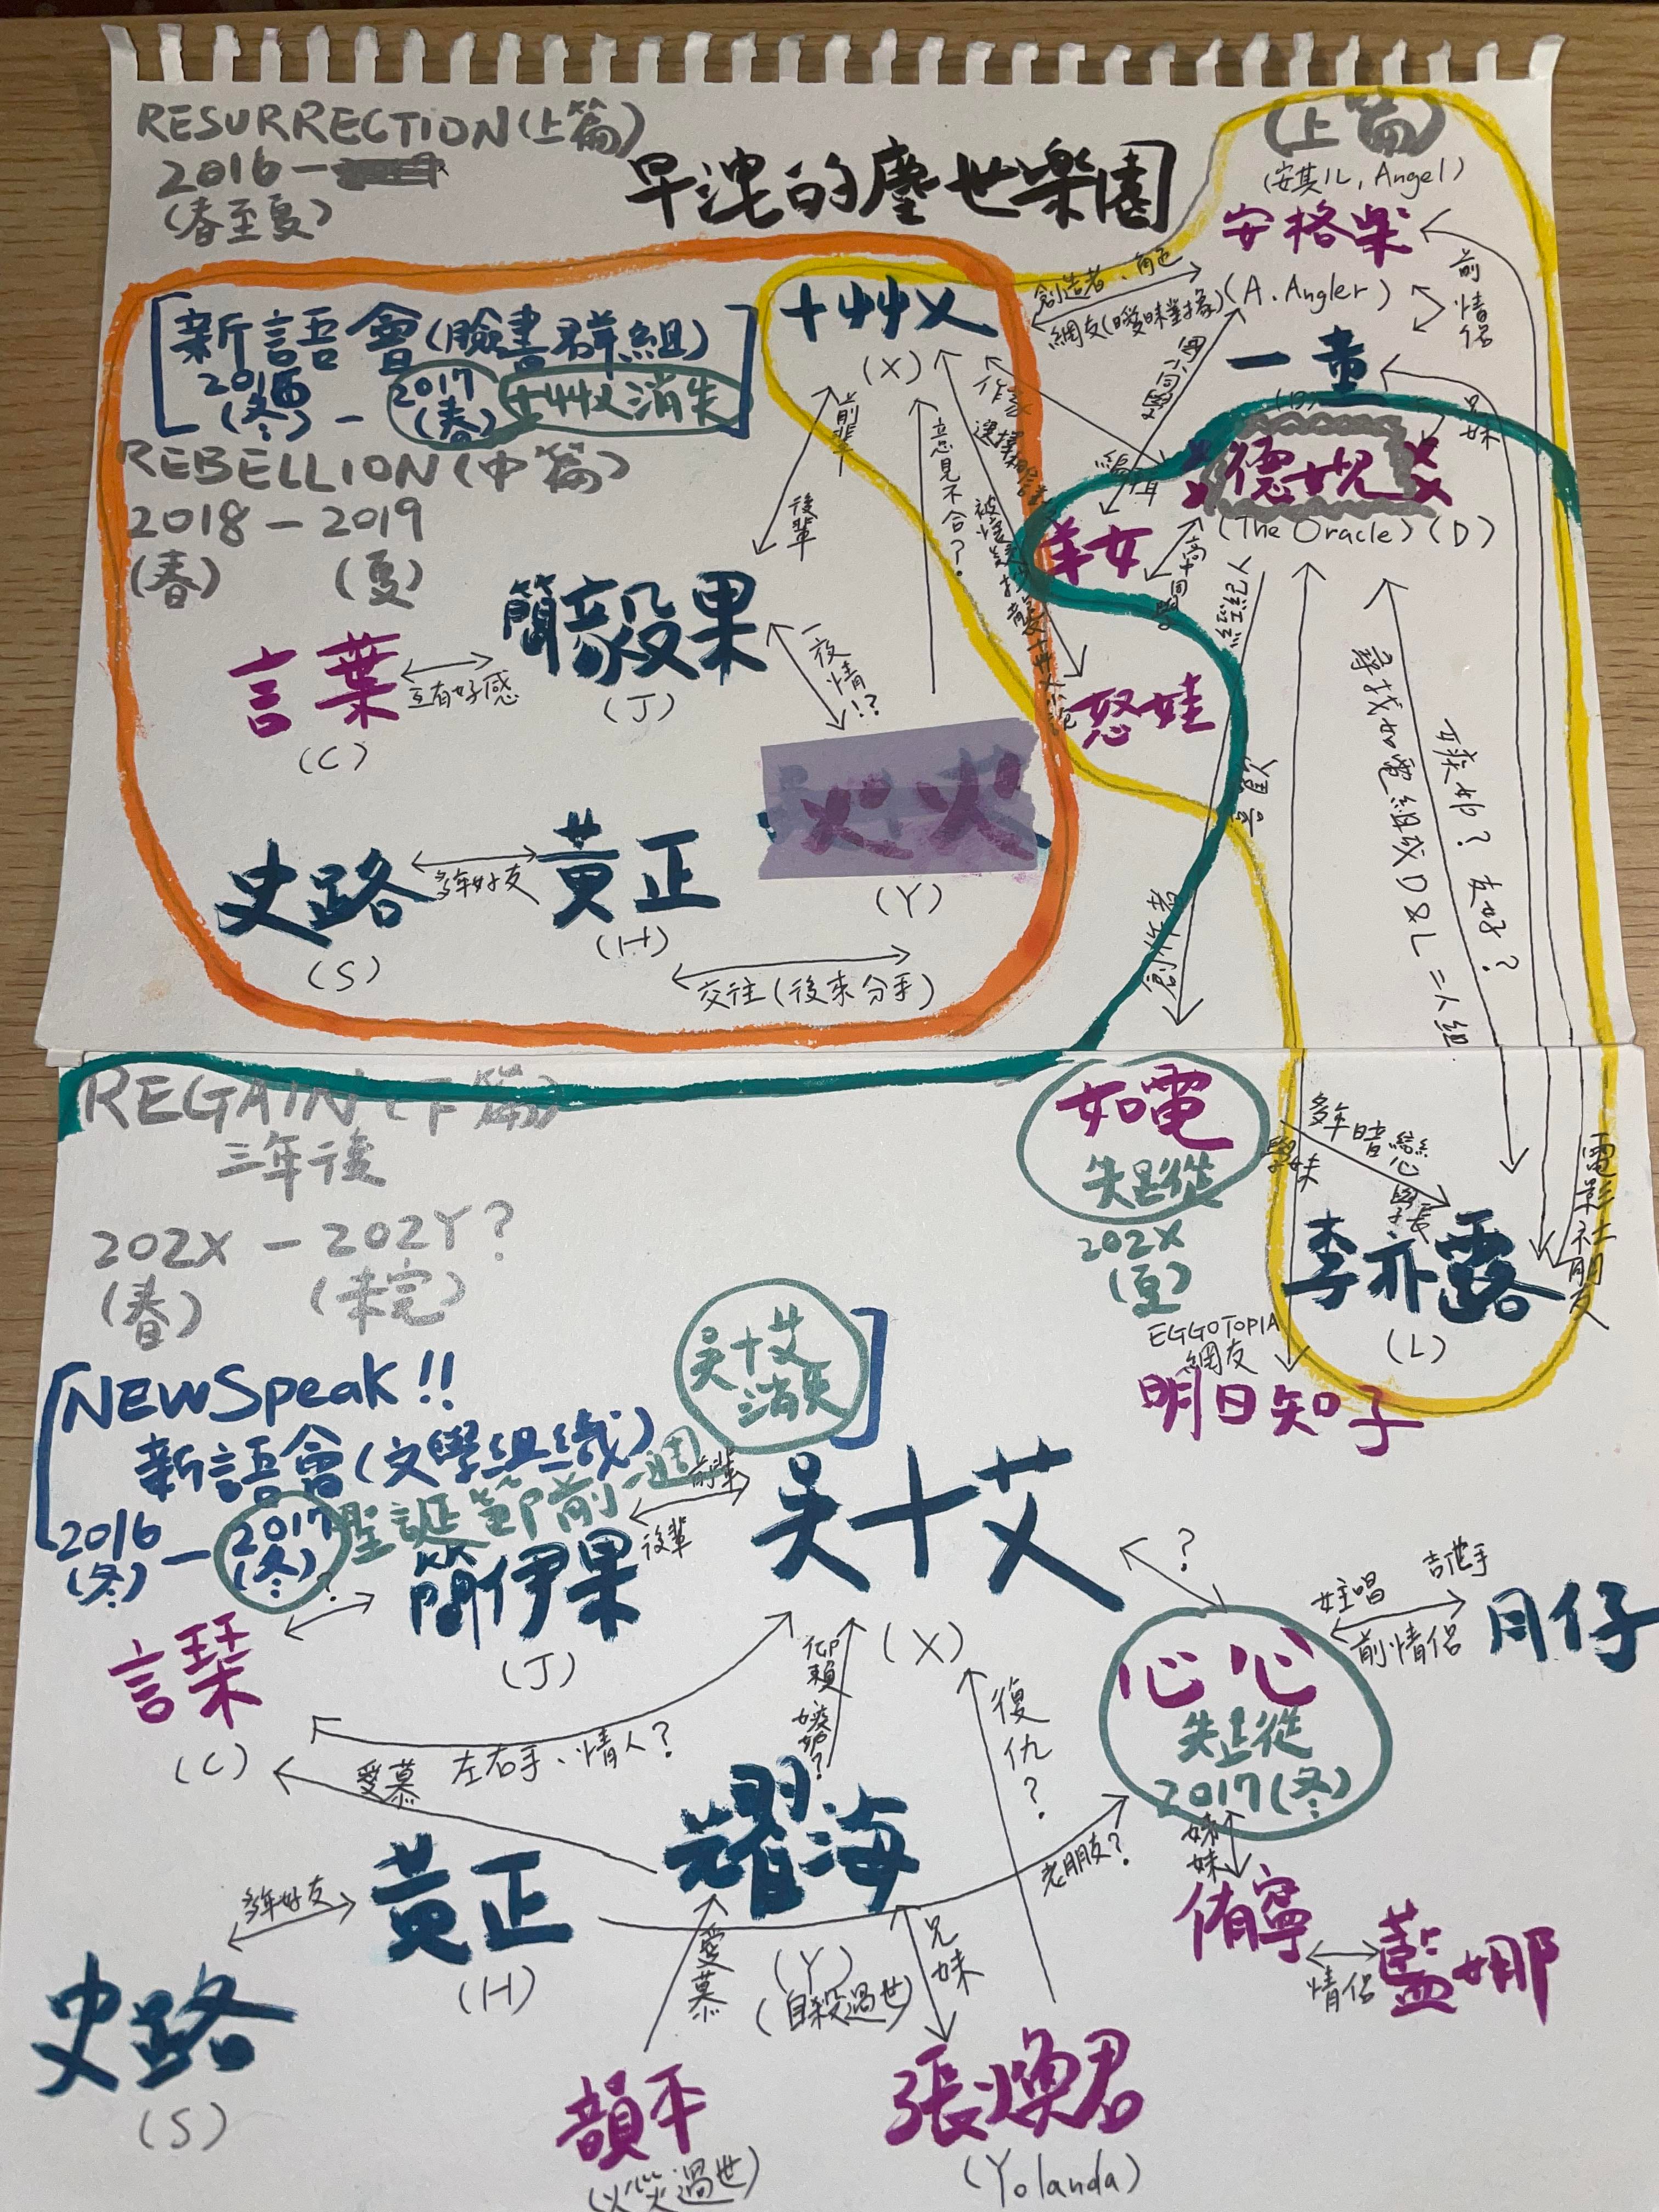 RESURRECTION(上篇)
2016-
(春至夏)
早洩的塵世樂園
(上篇)
(安其儿, Angel)
安格柴
(A. Angler)
前情侶
創造者、角色
網友(曖昧對象)
[新語會(臉書群組)
2016(冬) - 2017(春) 十艸乂消失]
十艸乂
(X)
一童
兄妹
REBELLION(中篇)
2018 - 2019
(春) (夏)
前輩
後輩
意見不合?
德妮
(The Oracle)(D)
羊女
高中同學
經紀人
簡毅果
(J)
言葉
(C)
互有好感
一夜情!?
怒娃
尋找如電組成D&L=人組
友好?
(Y)
史路
(S)
多年好友
黃正
(H)
交往(後來分手)
創作者
REGAIN(下篇)
三年後
202X - 202Y?
(春) (未完)
如電
失蹤
202X
(夏)
多年暗戀
學長
學妹
電影社朋友
李亦露
(L)
EGGOTOPIA
網友
明日知子
[NEWSpeak!!
新語會(文學組織)
2016(冬) - 2017(冬) 聖誕節前一週
吳十艾消失]
前輩
後輩
吳十艾
(X)
簡伊果
(J)
?
言琹
(C)
左右手、情人?
愛慕
仰賴
嫉妒?
復仇?
?
心心
失蹤
2017(冬)
女主唱 吉他手
前情侶
月仔
妹妹
老朋友?
侑寧
情侶
藍娜
耀海
(Y)
(自殺過世)
兄妹
愛慕
多年好友
黃正
(H)
史路
(S)
韻平
(火災過世)
張煥君
(Yolanda)